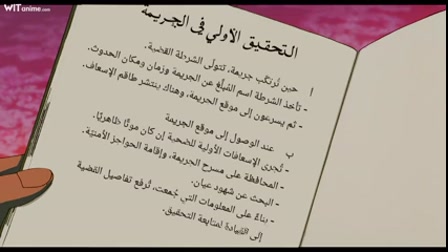 WITanime.com
التحقيق الأولي في الجريمة
أ حين تُرتكب جريمة، تتولّى الشرطة القضية.
- تأخذ الشرطة اسم المُبلّغ عن الجريمة وزمان ومكان الحدوث.
- ثم يسرعون إلى موقع الجريمة، وهناك ينتشر طاقم الإسعاف.
ب عند الوصول إلى موقع الجريمة
- تُجرى الإسعافات الأولية للضحية إن كان موتًا ظاهريًا.
- المحافظة على مسرح الجريمة، وإقامة الحواجز الأمنيّة.
- البحث عن شهود عيان.
- بناءً على المعلومات التي جُمعت، تُرفع تفاصيل القضية
إلى القيادة لمتابعة التحقيق.